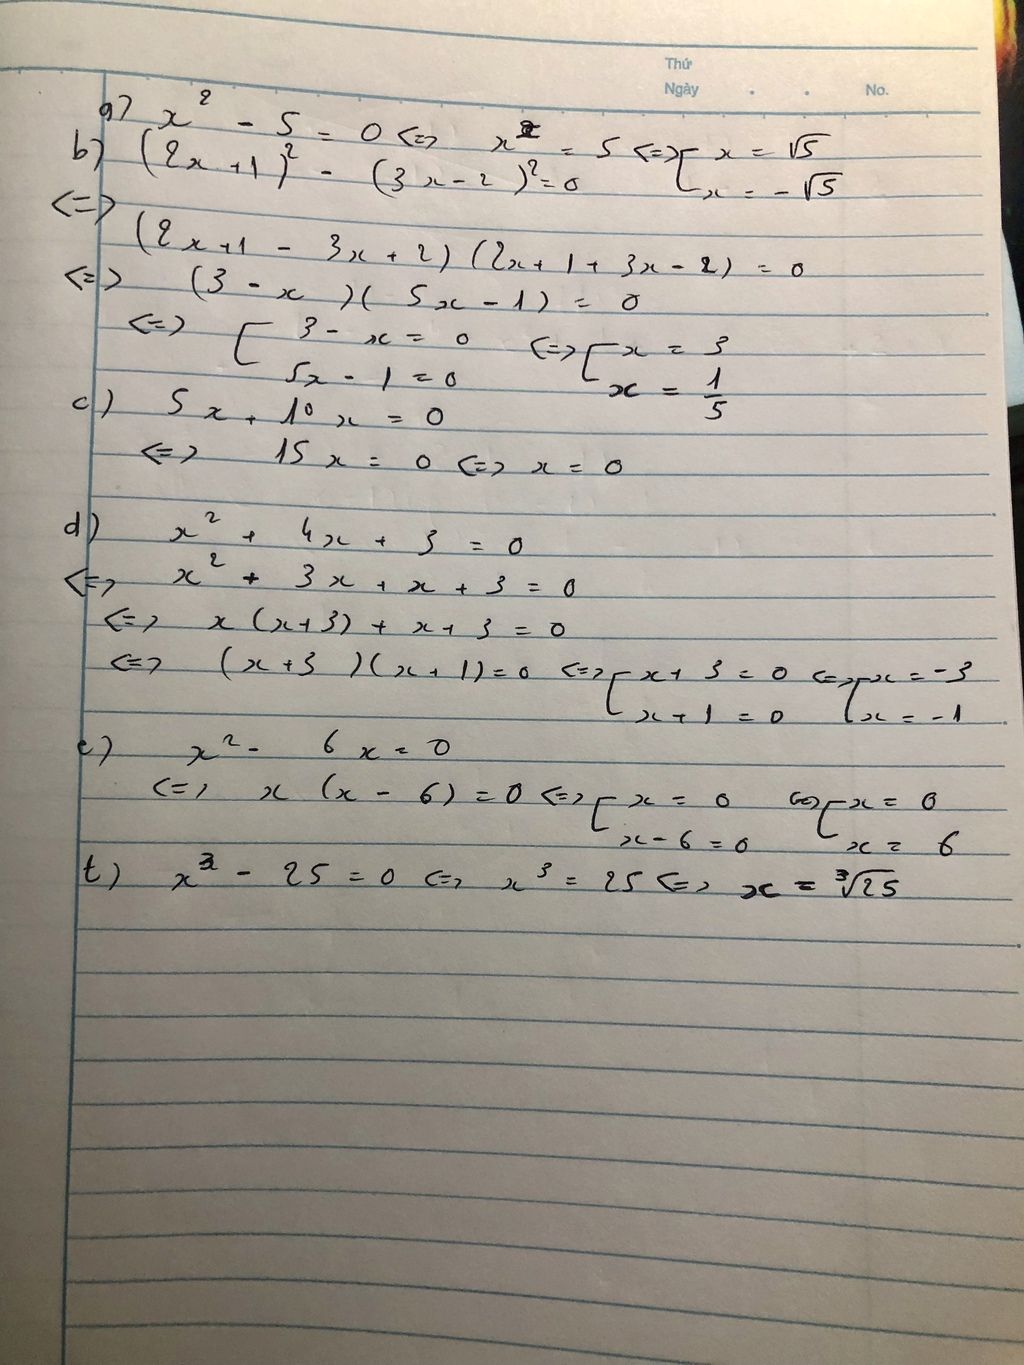 Thứ
Ngày . . No.
a) x² - 5 = 0 <=> x² = 5 <=> [ x = √5
x = -√5
b) (2x+1)² - (3x-2)² = 0
<=>
(2x+1 - 3x+2)(2x+1+3x-2) = 0
<=> (3 - x)(5x-1) = 0
<=> [ 3 - x = 0 <=> [ x = 3
5x - 1 = 0 x = 1/5
c) 5x + 10x = 0
<=> 15x = 0 <=> x = 0
d) x² + 4x + 3 = 0
<=> x² + 3x + x + 3 = 0
<=> x(x+3) + x + 3 = 0
<=> (x+3)(x+1) = 0 <=> [ x + 3 = 0 <=> [ x = -3
x + 1 = 0 x = -1
e) x² - 6x = 0
<=> x(x - 6) = 0 <=> [ x = 0 <=> [ x = 0
x - 6 = 0 x = 6
f) x³ - 25 = 0 <=> x³ = 25 <=> x = ³√25